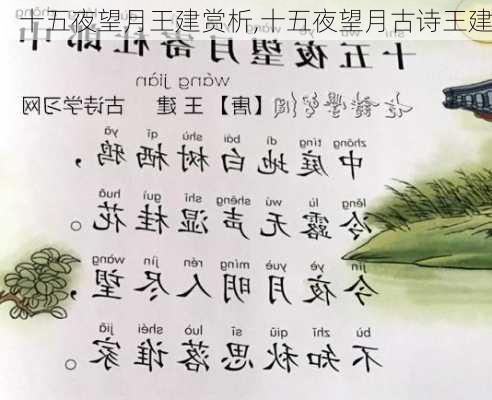 十五夜望月王建赏析,十五夜望月古诗王建
十五夜望月寄杜郎中
wáng jiàn
【唐】 王 建 古诗学习网
zhōng tíng dì bái shù qī yā
中庭地白树栖鸦，
lěng lù wú shēng shī guì huā
冷露无声湿桂花。
jīn yè yuè míng rén jìn wàng
今夜月明人尽望，
bù zhī qiū sī luò shéi jiā
不知秋思落谁家。